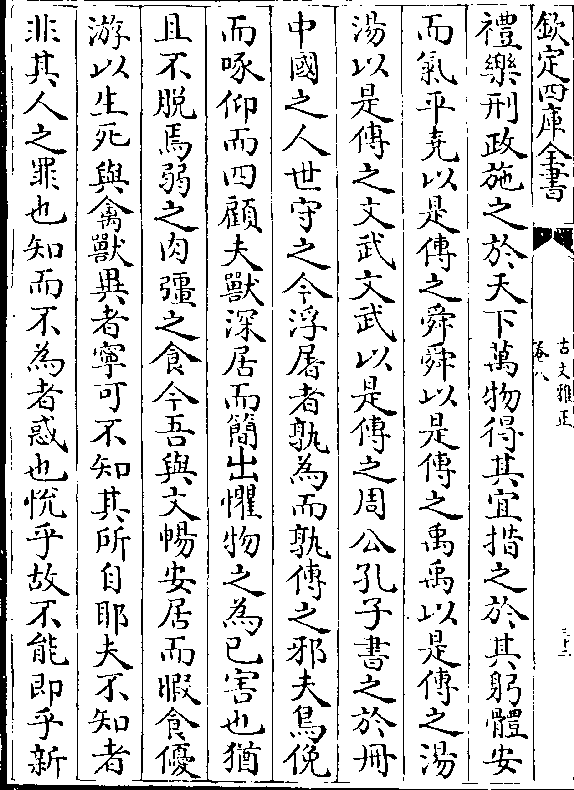 欽定四庫全書
古文雅正
卷八
禮樂刑政施之於天下萬物得其宜措之於其躬體安
而氣平堯以是傳之舜舜以是傳之禹禹以是傳之湯
湯以是傳之文武文武以是傳之周公孔子書之於冊
中國之人世守之今浮屠者孰為而孰傳之邪夫鳥俛
而啄仰而四顧夫獸深居而簡出懼物之為已害也猶
且不脫焉弱之肉彊之食今吾與文暢安居而暇食優
游以生死與禽獸異者寧可不知其所自耶夫不知者
非其人之罪也知而不為者惑也恱乎故不能即乎新